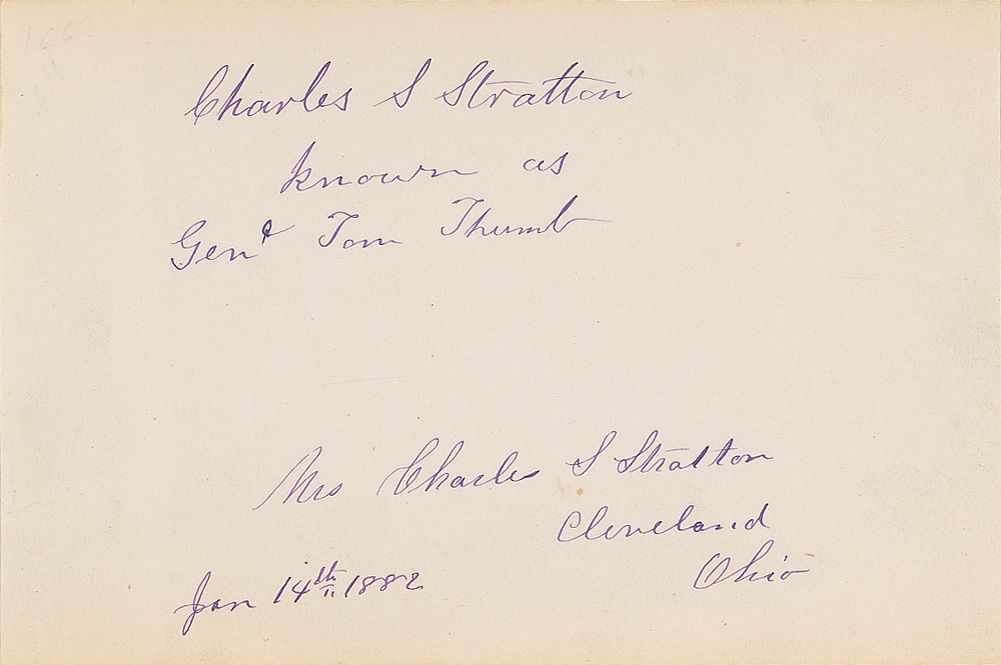 Charles S Stratton
known as
Genl Tom Thumb
Mrs Charles S Stratton
Cleveland
Ohio
Jan 14th 1882